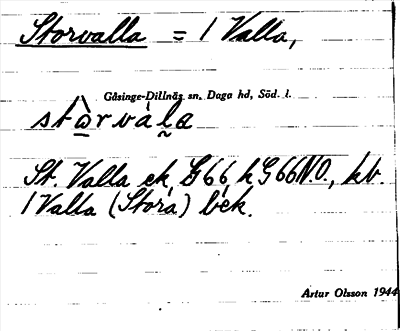 Storvalla = 1 Valla,
Gåsinge-Dillnäs sn, Daga hd, Söd. l.
stòrvàla
St. Valla ek, G66, h G66 N.O., kv.
1 Valla (Stora) bek.
Artur Olsson 1944